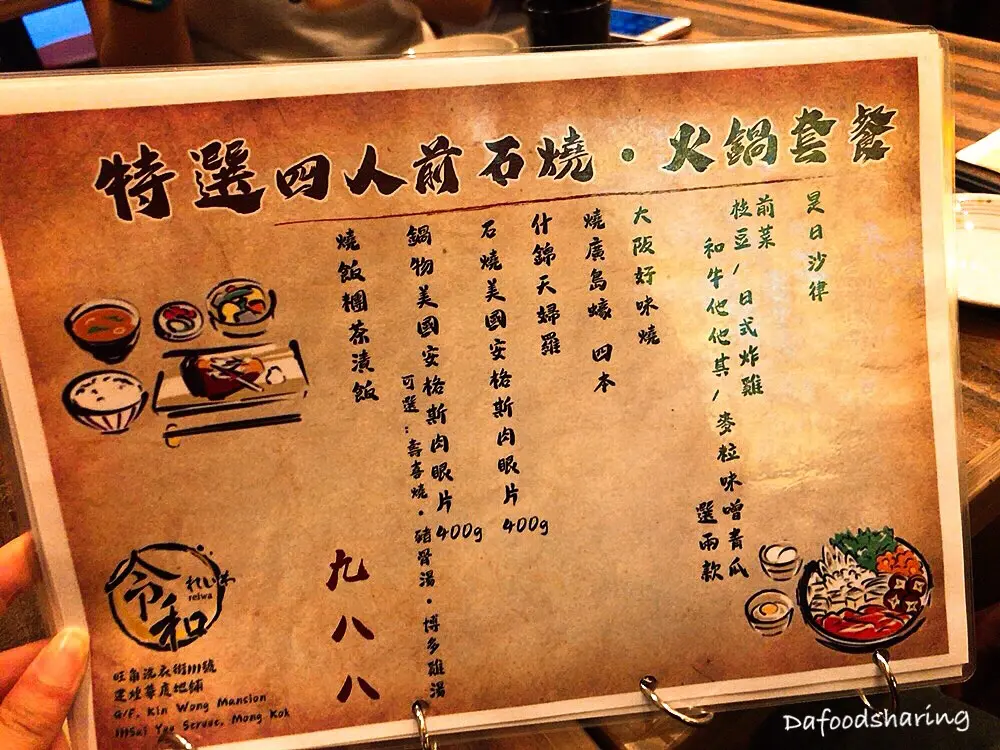 特選四人前石燒・火鍋套餐
是日沙律
前菜
枝豆/日式炸雞
和牛他他其/麥粒味噌青瓜
選兩款
大阪好味燒
燒廣島蠔 四本
什錦天婦羅
石燒美國安格斯肉眼片400g
鍋物美國安格斯肉眼片400g
可選:壽喜燒・豬骨湯・博多雞湯
燒飯糰茶漬飯
九八八
令和
れいわ
reiwa
旺角洗衣街111號
G/F, Kin Wong Mansion
111Sai Yee Street, Mong Kok
Dafoodsharing